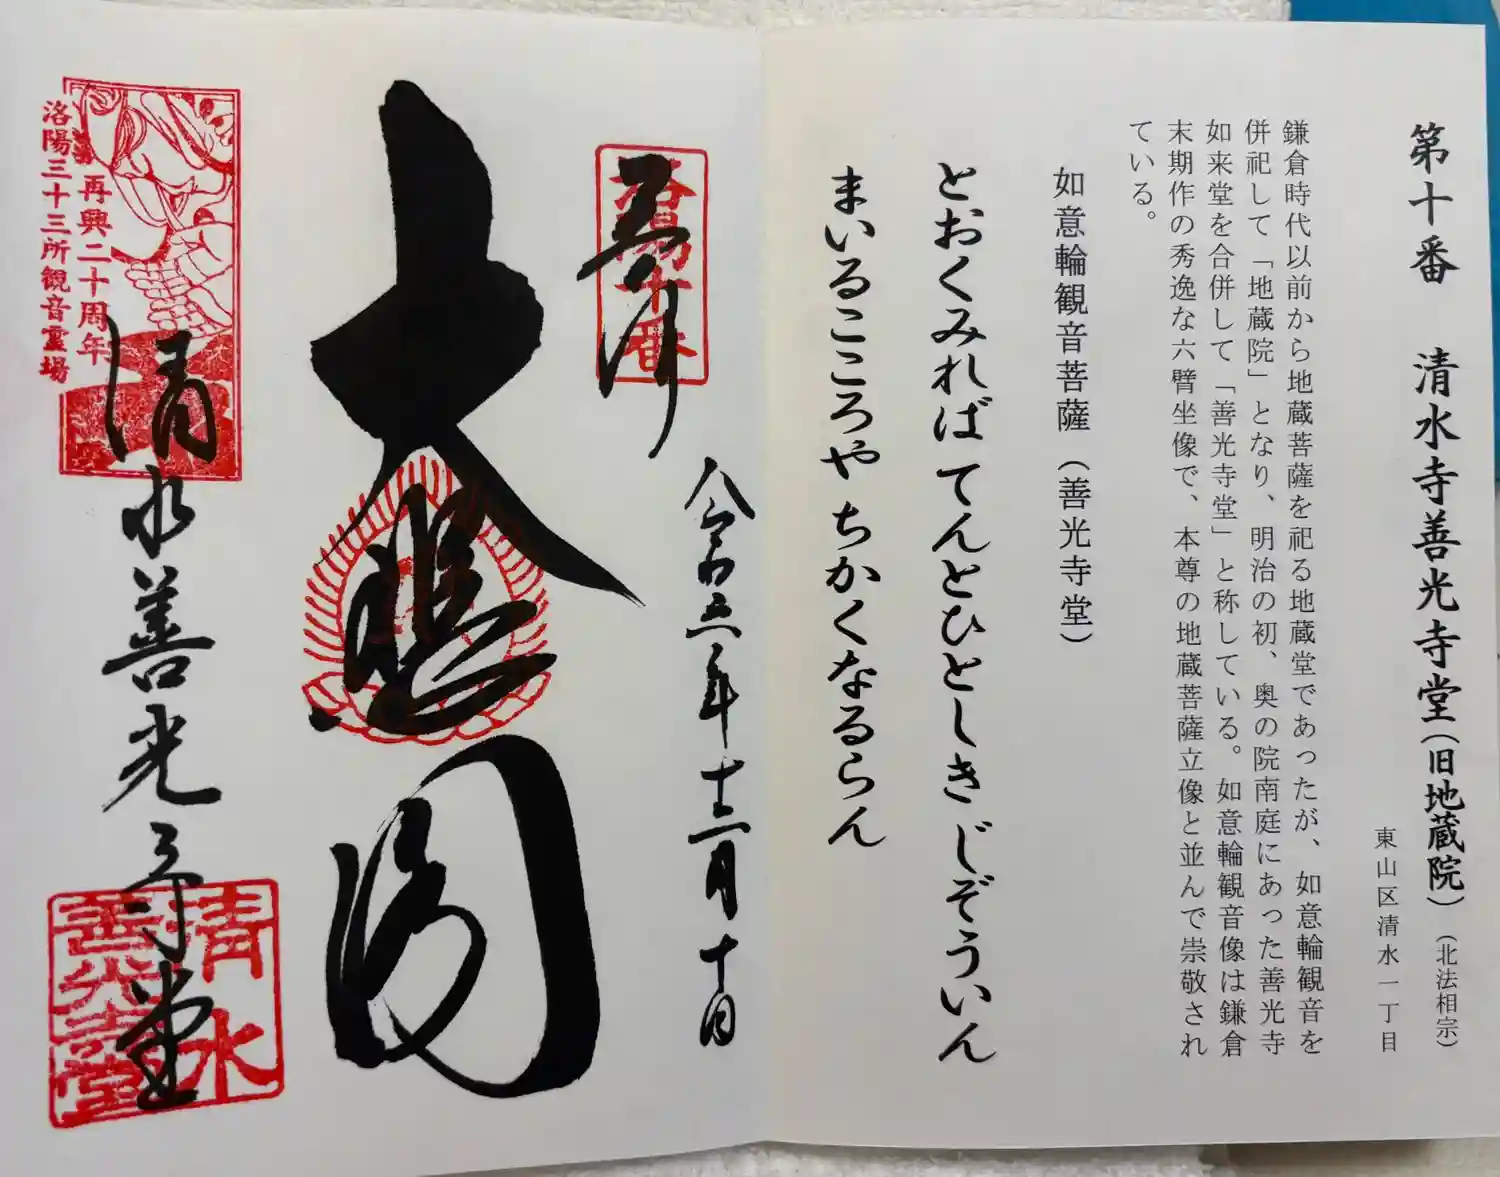 第十番　清水寺善光寺堂(旧地蔵院)(北法相宗)
東山区清水一丁目
鎌倉時代以前から地蔵菩薩を祀る地蔵堂であったが、如意輪観音を
併祀して「地蔵院」となり、明治の初、奥の院南庭にあった善光寺
如来堂を合併して「善光寺堂」と称している。如意輪観音像は鎌倉
末期作の秀逸な六臂坐像で、本尊の地蔵菩薩立像と並んで崇敬され
ている。
如意輪観音菩薩(善光寺堂)
とおくみれば てんとひとしき じぞういん
まいるこころや ちかくなるらん
洛陽十番
奉拝
令和六年十二月十日
大悲閣
再興二十周年
洛陽三十三所観音霊場
清水善光寺堂
清水
善光寺堂